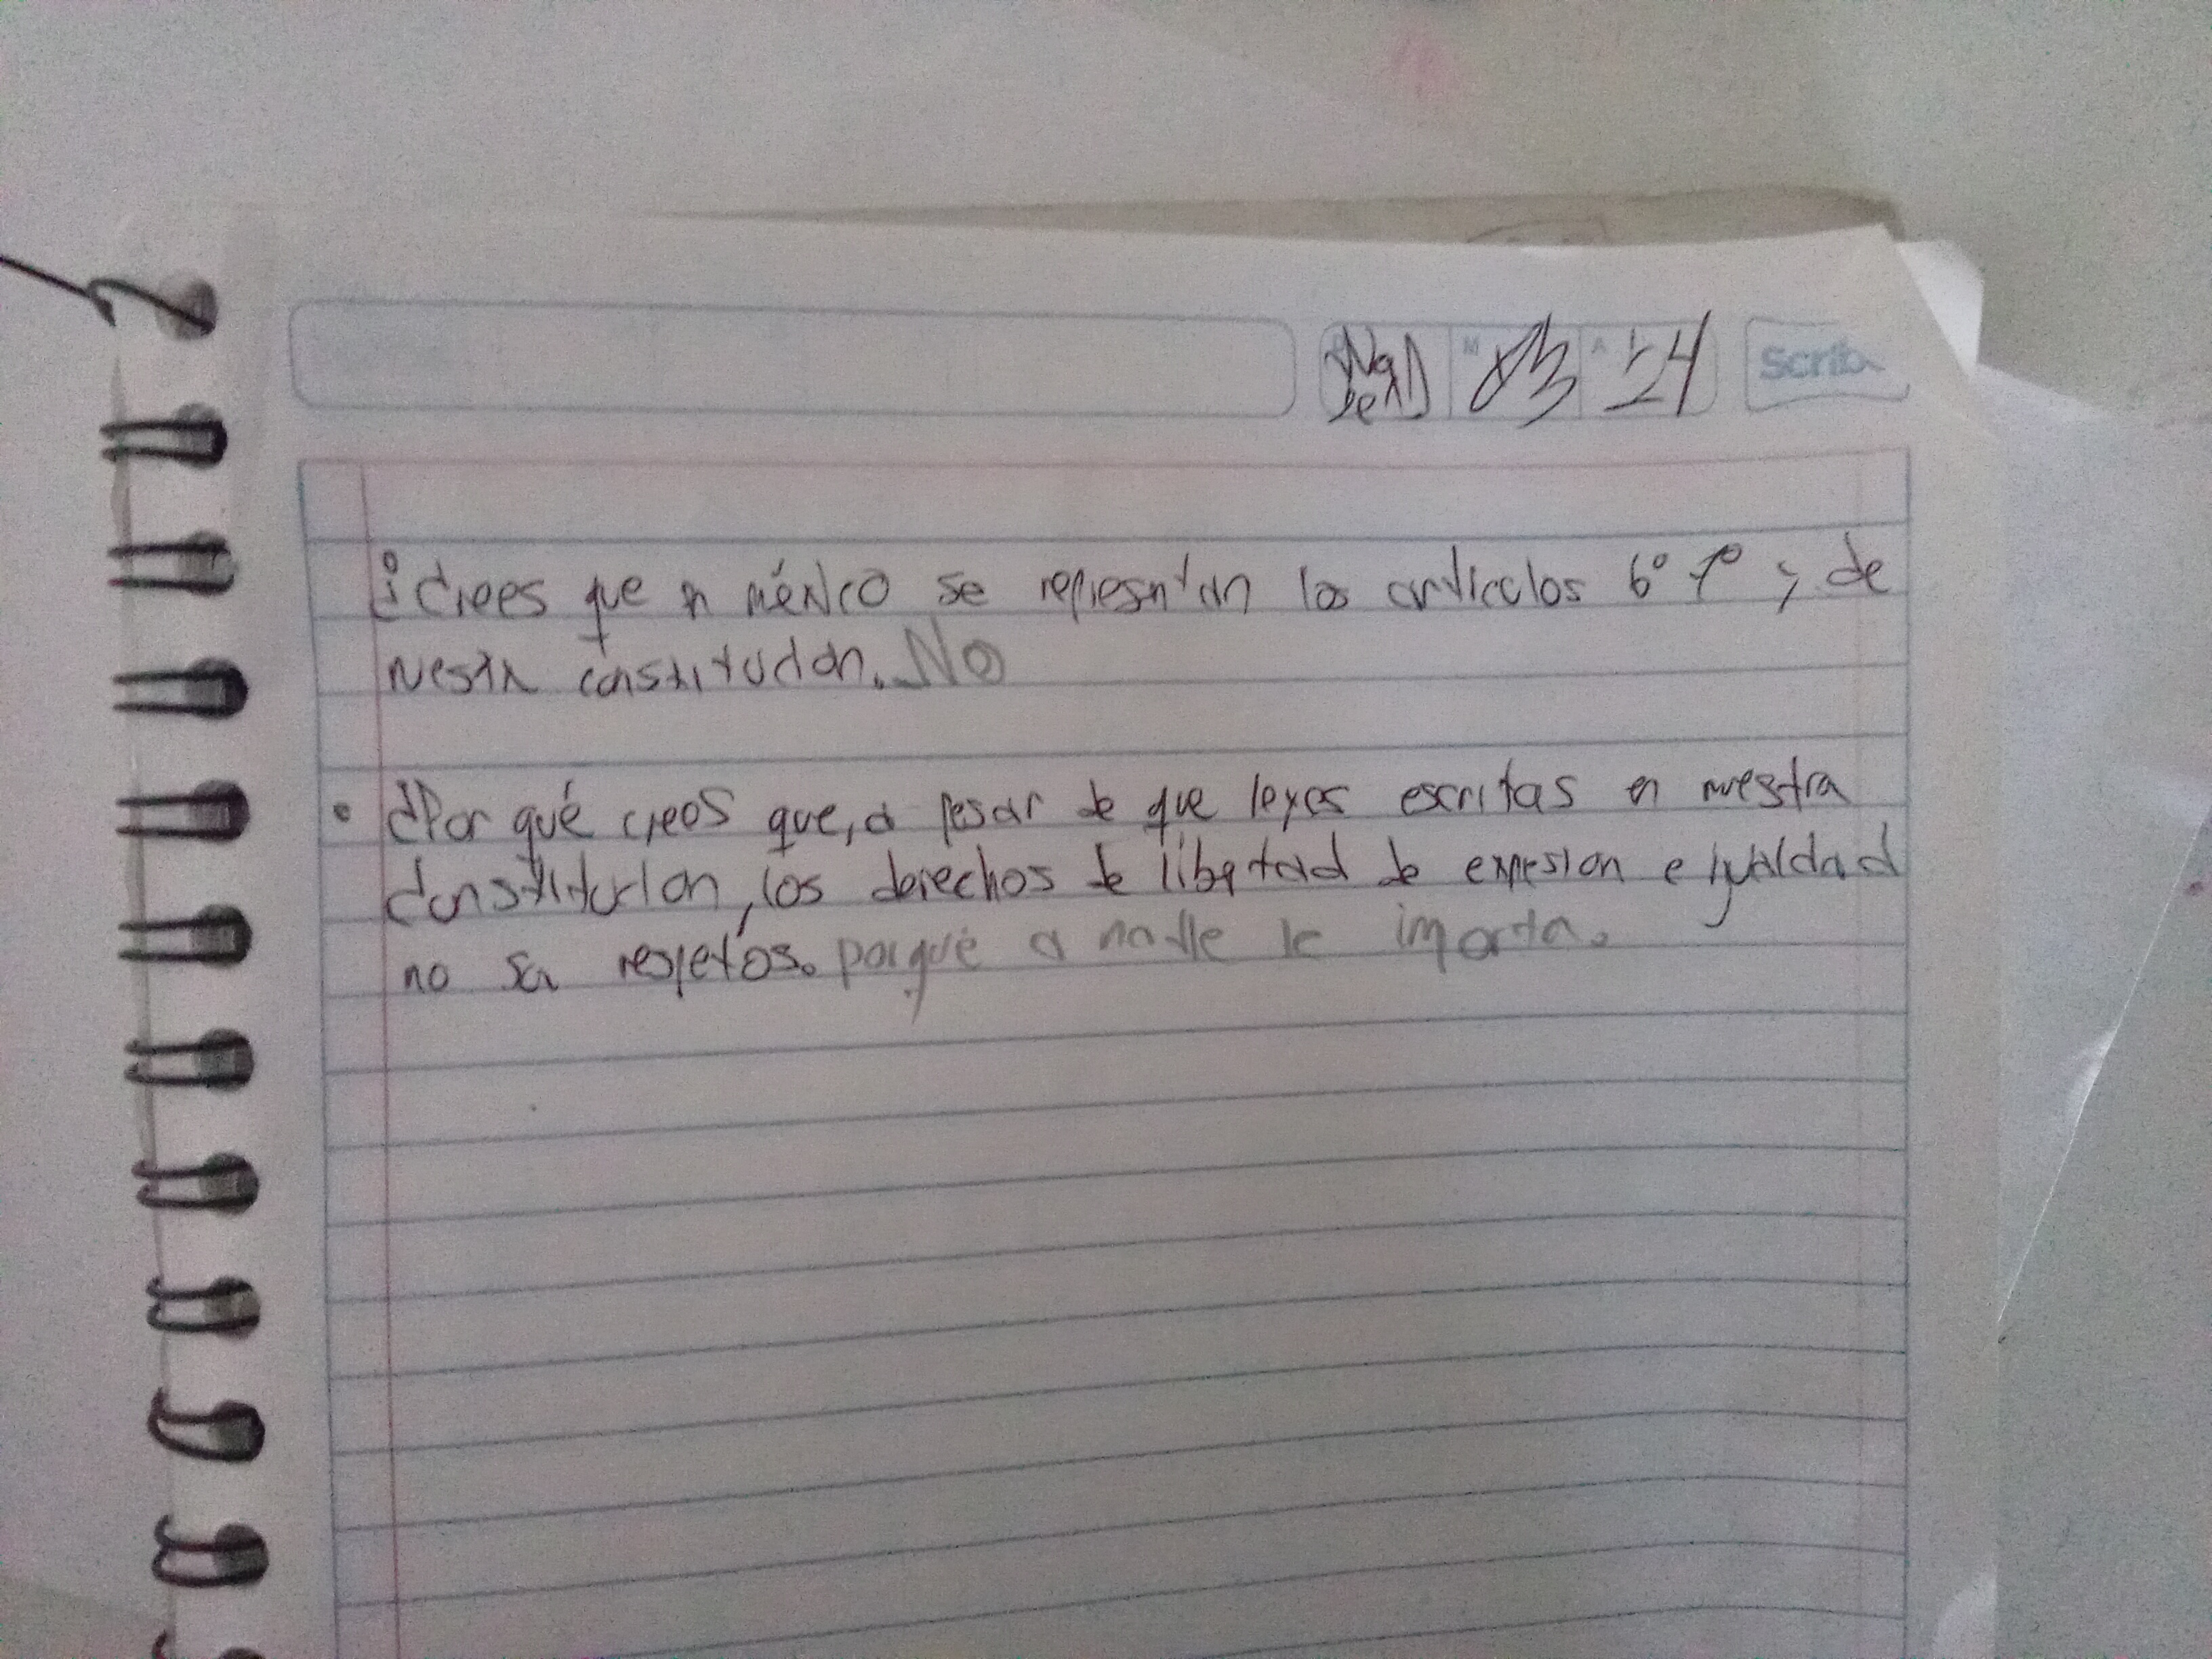 03 24 Scrib
¿Crees que n méxico se represntan los articulos 6° 7° y de
nestra constitucion. No
• ¿Por qué crees que, a pesar de que leyes escritas en nuestra
constitucion, los derechos de libertad de expresion e igualdad
no sn respetos. porque a nadie le imorta.